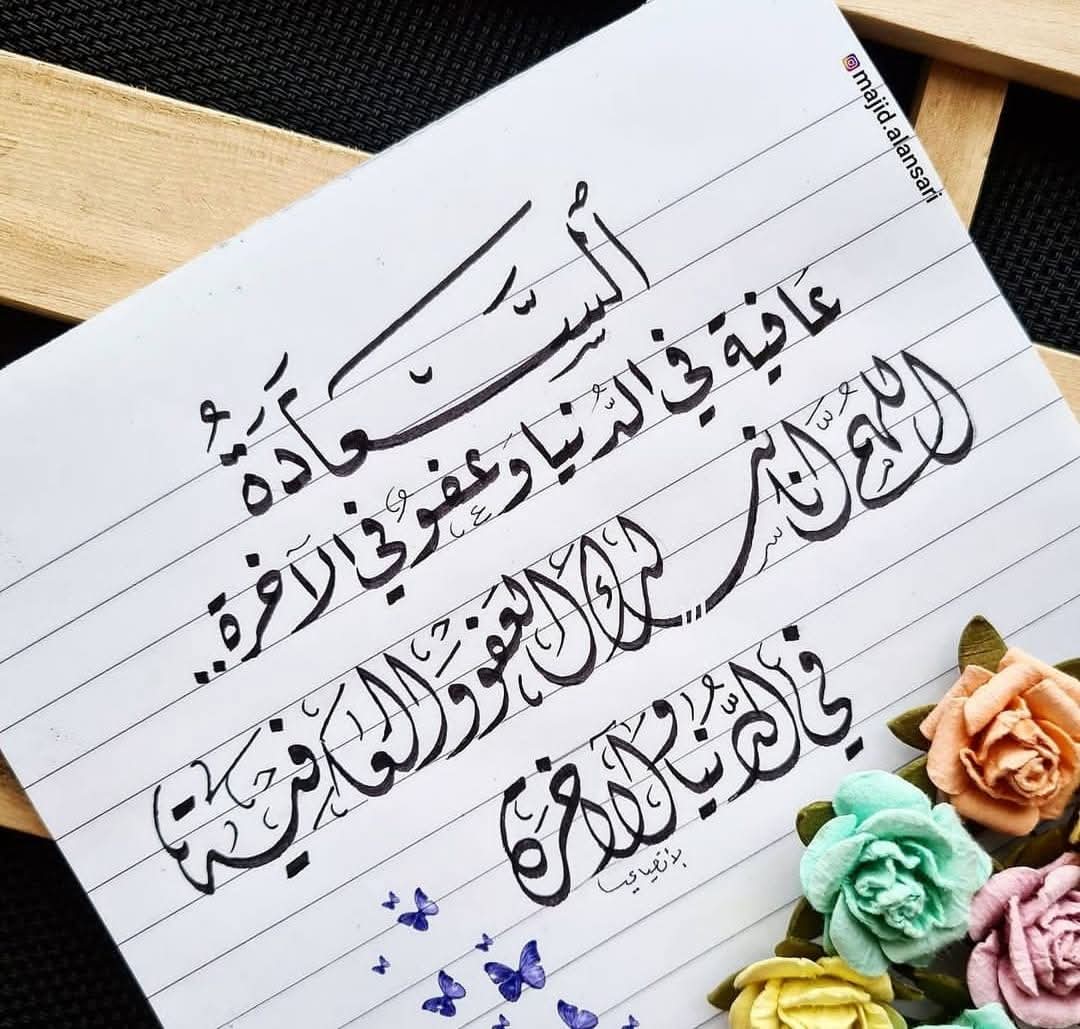 majid.alansari
ٱلسَّعَادَةُ
عَافية في الدُّنيا وَعفوُ في الآخرة..
اللهم إنّا نسألك العفو وَالعافية
في الدُّنيا وَالآخرة
الأنصاري